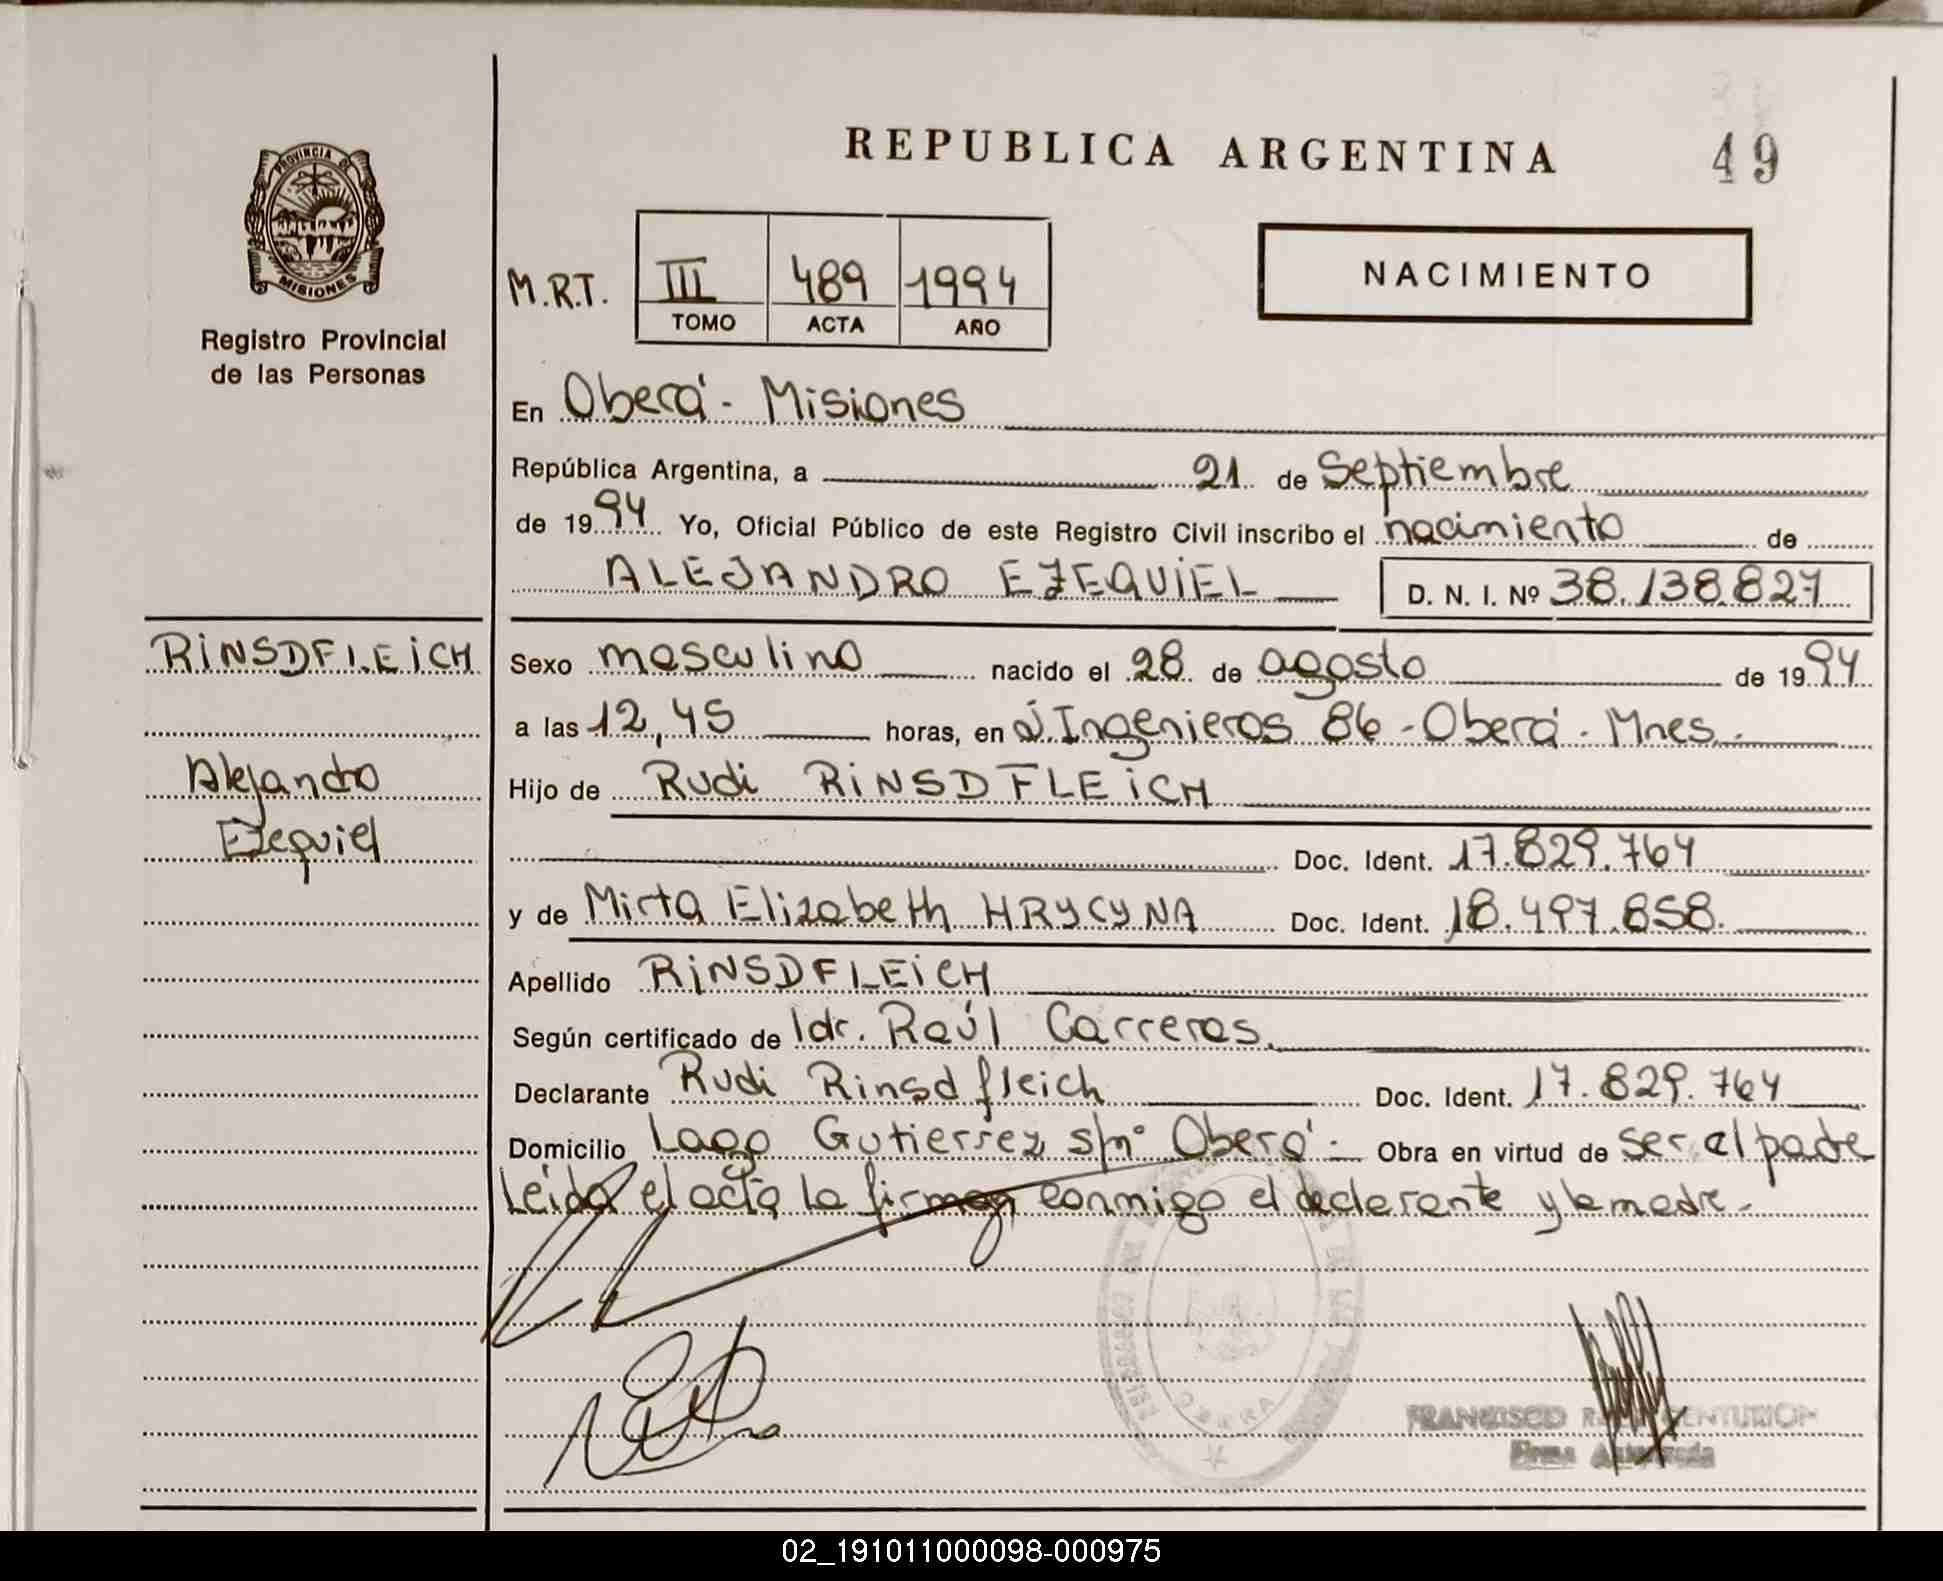 REPUBLICA ARGENTINA
49
PROVINCIA DE
MISIONES
Registro Provincial
de las Personas
M.R.T.
III 489 1994
TOMO ACTA AÑO
NACIMIENTO
En Oberá - Misiones
República Argentina, a 21 de Septiembre
de 1994 Yo, Oficial Público de este Registro Civil inscribo el nacimiento de
ALEJANDRO EZEQUIEL D. N. I. Nº 38.138.827
RINSDFLEICH
Alejandro
Ezequiel
Sexo masculino nacido el 28 de agosto de 1994
a las 12,45 horas, en Ingenieros 86 - Oberá - Mnes.-
Hijo de Rudi RINSDFLEICH
Doc. Ident. 17.829.764
y de Mirta Elizabeth HRYCYNA Doc. Ident. 18.497.858.
Apellido RINSDFLEICH
Según certificado de Raúl Carreras.
Declarante Rudi Rinsdfleich Doc. Ident. 17.829.764
Domicilio Lago Gutierrez s/nº Oberá - Obra en virtud de ser el padre
Leida el acta la firman conmigo el declarante y la madre.-
OBERA
FRANCISCO CENTURION
Firma Autorizada
02_191011000098-000975